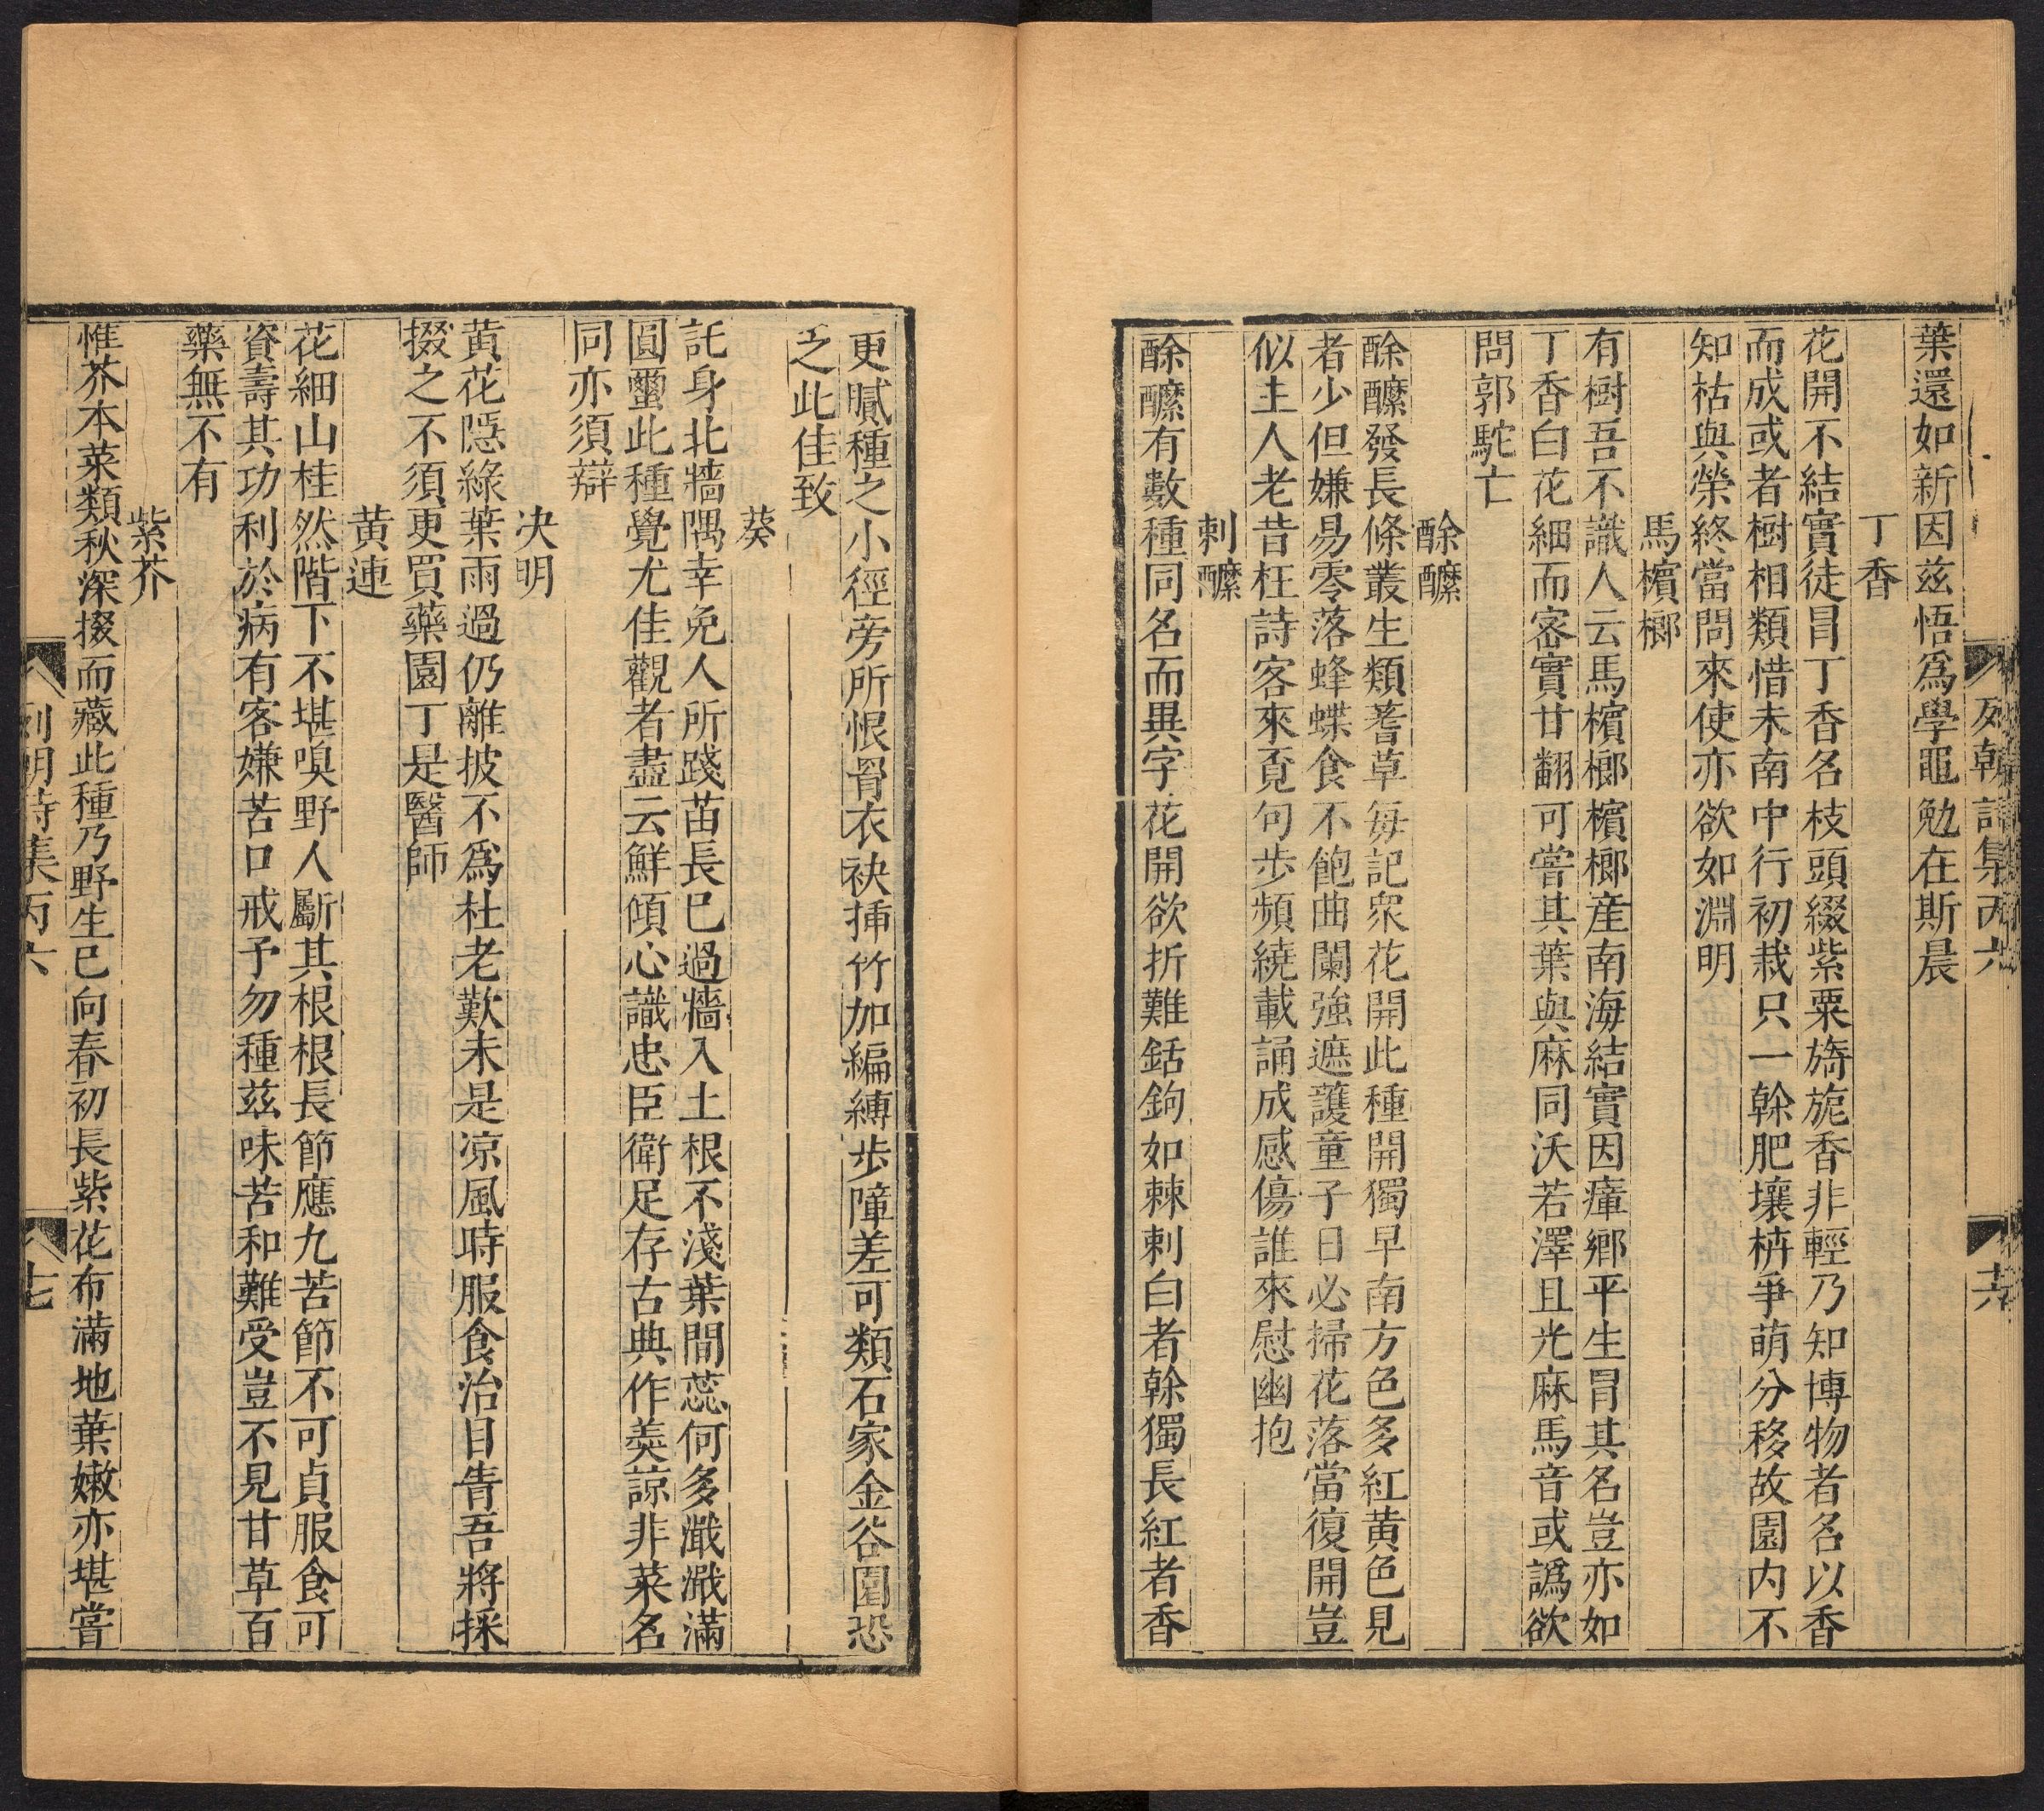 列朝詩集丙六
六
葉還如新因茲悟爲學黽勉在斯晨
丁香
花開不結實徒冒丁香名枝頭綴紫粟旖旎香非輕乃知博物者名以香
而成或者樹相類惜未南中行初栽只一幹肥壤枿爭萌分移故園内不
知枯與榮終當問來使亦欲如淵明
馬檳榔
有樹吾不識人云馬檳榔檳榔産南海結實因瘴鄉平生冒其名豈亦如
丁香白花細而宻實甘翻可嘗其葉與麻同沃若澤且光麻馬音或譌欲
問郭駝亡
酴醿
酴醿發長條叢生類蓍草每記衆花開此種開獨早南方色多紅黄色見
者少但嫌易零落蜂蝶食不飽曲闌強遮護童子日必掃花落當復開豈
似主人老昔枉詩客來覔句步頻繞載誦成感傷誰來慰幽抱
刺醿
酴醿有數種同名而異字花開欲折難銛鉤如棘刺白者幹獨長紅者香
更膩種之小徑旁所恨罥衣袂揷竹加編縛步障差可類石家金谷園恐
乏此佳致
葵
託身北牆隅幸免人所踐苗長已過牆入土根不淺葉間蕊何多濈濈滿
圓璽此種覺尤佳觀者盡云鮮傾心識忠臣衛足存古典作羮諒非菜名
同亦須辯
決明
黄花隱綠葉雨過仍離披不爲杜老歎未是凉風時服食治目眚吾將採
掇之不須更買藥園丁是醫師
黄連
花細山桂然階下不堪嗅野人斸其根根長節應九苦節不可貞服食可
資壽其功利於病有客嫌苦口戒予勿種茲味苦和難受豈不見甘草百
藥無不有
紫芥
惟芥本菜類秋深掇而藏此種乃野生已向春初長紫花布滿地葉嫩亦堪嘗
列朝詩集丙六
七